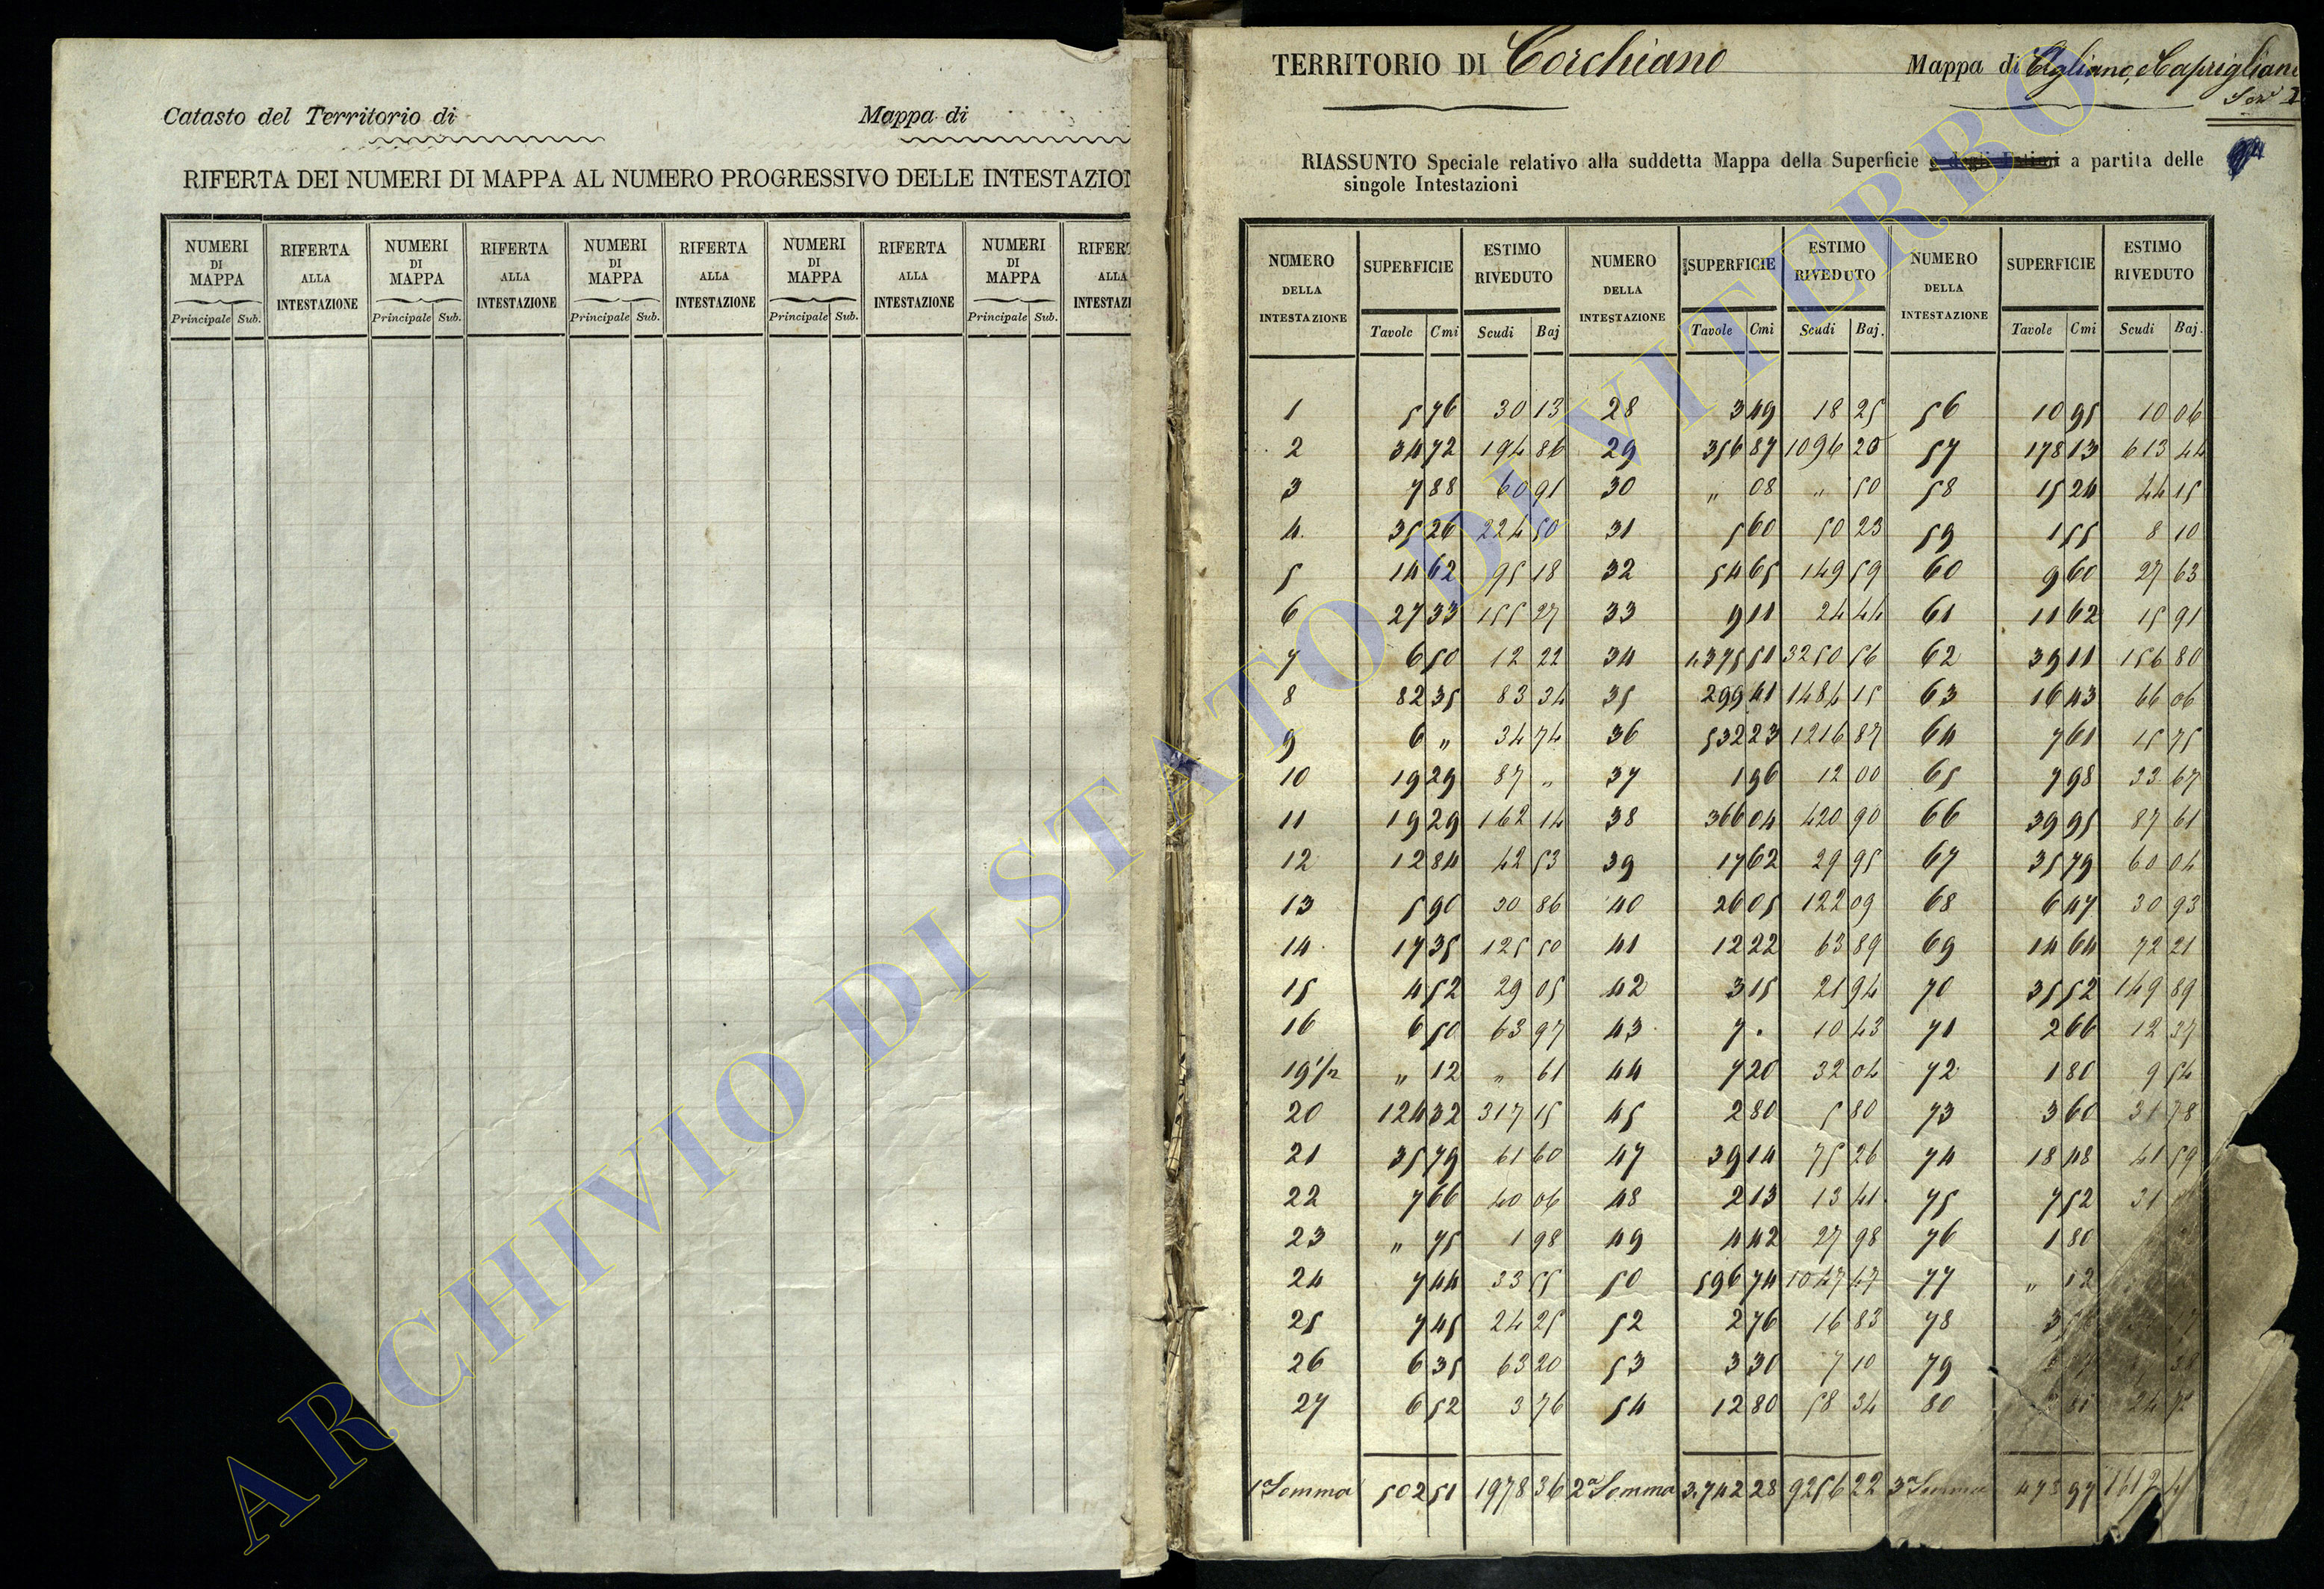 Catasto del Territorio di
Mappa di
RIFERTA DEI NUMERI DI MAPPA AL NUMERO PROGRESSIVO DELLE INTESTAZION
NUMERI DI MAPPA RIFERTA ALLA INTESTAZIONE NUMERI DI MAPPA RIFERTA ALLA INTESTAZIONE NUMERI DI MAPPA RIFERTA ALLA INTESTAZIONE NUMERI DI MAPPA RIFERTA ALLA INTESTAZIONE NUMERI DI MAPPA RIFERT ALLA INTESTAZI
Principale Sub. Principale Sub. Principale Sub. Principale Sub. Principale Sub.
TERRITORIO DI Corchiano
Mappa di Agliano, e Caprigliano
RIASSUNTO Speciale relativo alla suddetta Mappa della Superficie e degli Estimi a partita delle
singole Intestazioni
NUMERO DELLA INTESTAZIONE SUPERFICIE ESTIMO RIVEDUTO NUMERO DELLA INTESTAZIONE SUPERFICIE ESTIMO RIVEDUTO NUMERO DELLA INTESTAZIONE SUPERFICIE ESTIMO RIVEDUTO
Tavole Cmi Scudi Baj Tavole Cmi Scudi Baj. Tavole Cmi Scudi Baj.
1 5 76 30 13 28 3 49 18 25 56 10 95 10 06
2 34 72 194 86 29 356 87 1096 20 57 178 13 613 44
3 7 88 60 91 30 " 08 " 50 58 15 24 44 15
4 35 26 224 50 31 5 60 50 23 59 1 55 8 10
5 14 62 95 18 32 54 65 149 59 60 9 60 27 63
6 27 33 155 27 33 9 11 24 44 61 11 62 15 91
7 6 50 12 22 34 1.375 51 3250 56 62 39 11 156 80
8 82 35 83 34 35 299 41 1484 15 63 16 43 66 06
9 6 " 34 74 36 532 23 1216 87 64 7 61 15 75
10 19 29 87 " 37 1 96 12 00 65 7 98 33 67
11 19 29 162 14 38 366 04 420 90 66 39 95 87 61
12 12 84 42 53 39 17 62 29 95 67 35 79 60 04
13 5 90 30 86 40 26 05 122 09 68 6 47 30 93
14 17 35 125 50 41 12 22 63 89 69 14 64 72 21
15 4 52 29 05 42 3 15 21 94 70 35 52 149 89
16 6 50 63 97 43 7 . 10 43 71 2 66 12 37
19 1/2 " 12 " 61 44 7 20 32 04 72 1 80 9 54
20 124 32 317 15 45 2 80 5 80 73 3 60 31 78
21 35 79 61 60 47 39 14 75 26 74 18 48 41 59
22 7 66 40 06 48 2 13 13 41 75 7 52 31
23 " 75 1 98 49 4 42 27 98 76 1 80
24 7 44 33 55 50 596 74 1047 47 77 " 12
25 7 45 24 25 52 2 76 16 83 78
26 6 35 63 20 53 3 30 7 10 79
27 6 52 3 76 54 12 80 58 34 80
1a Somma 502 51 1978 36 2a Somma 3.742 28 9256 22 3a Somma 473 97 1612
ARCHIVIO DI STATO DI VITERBO